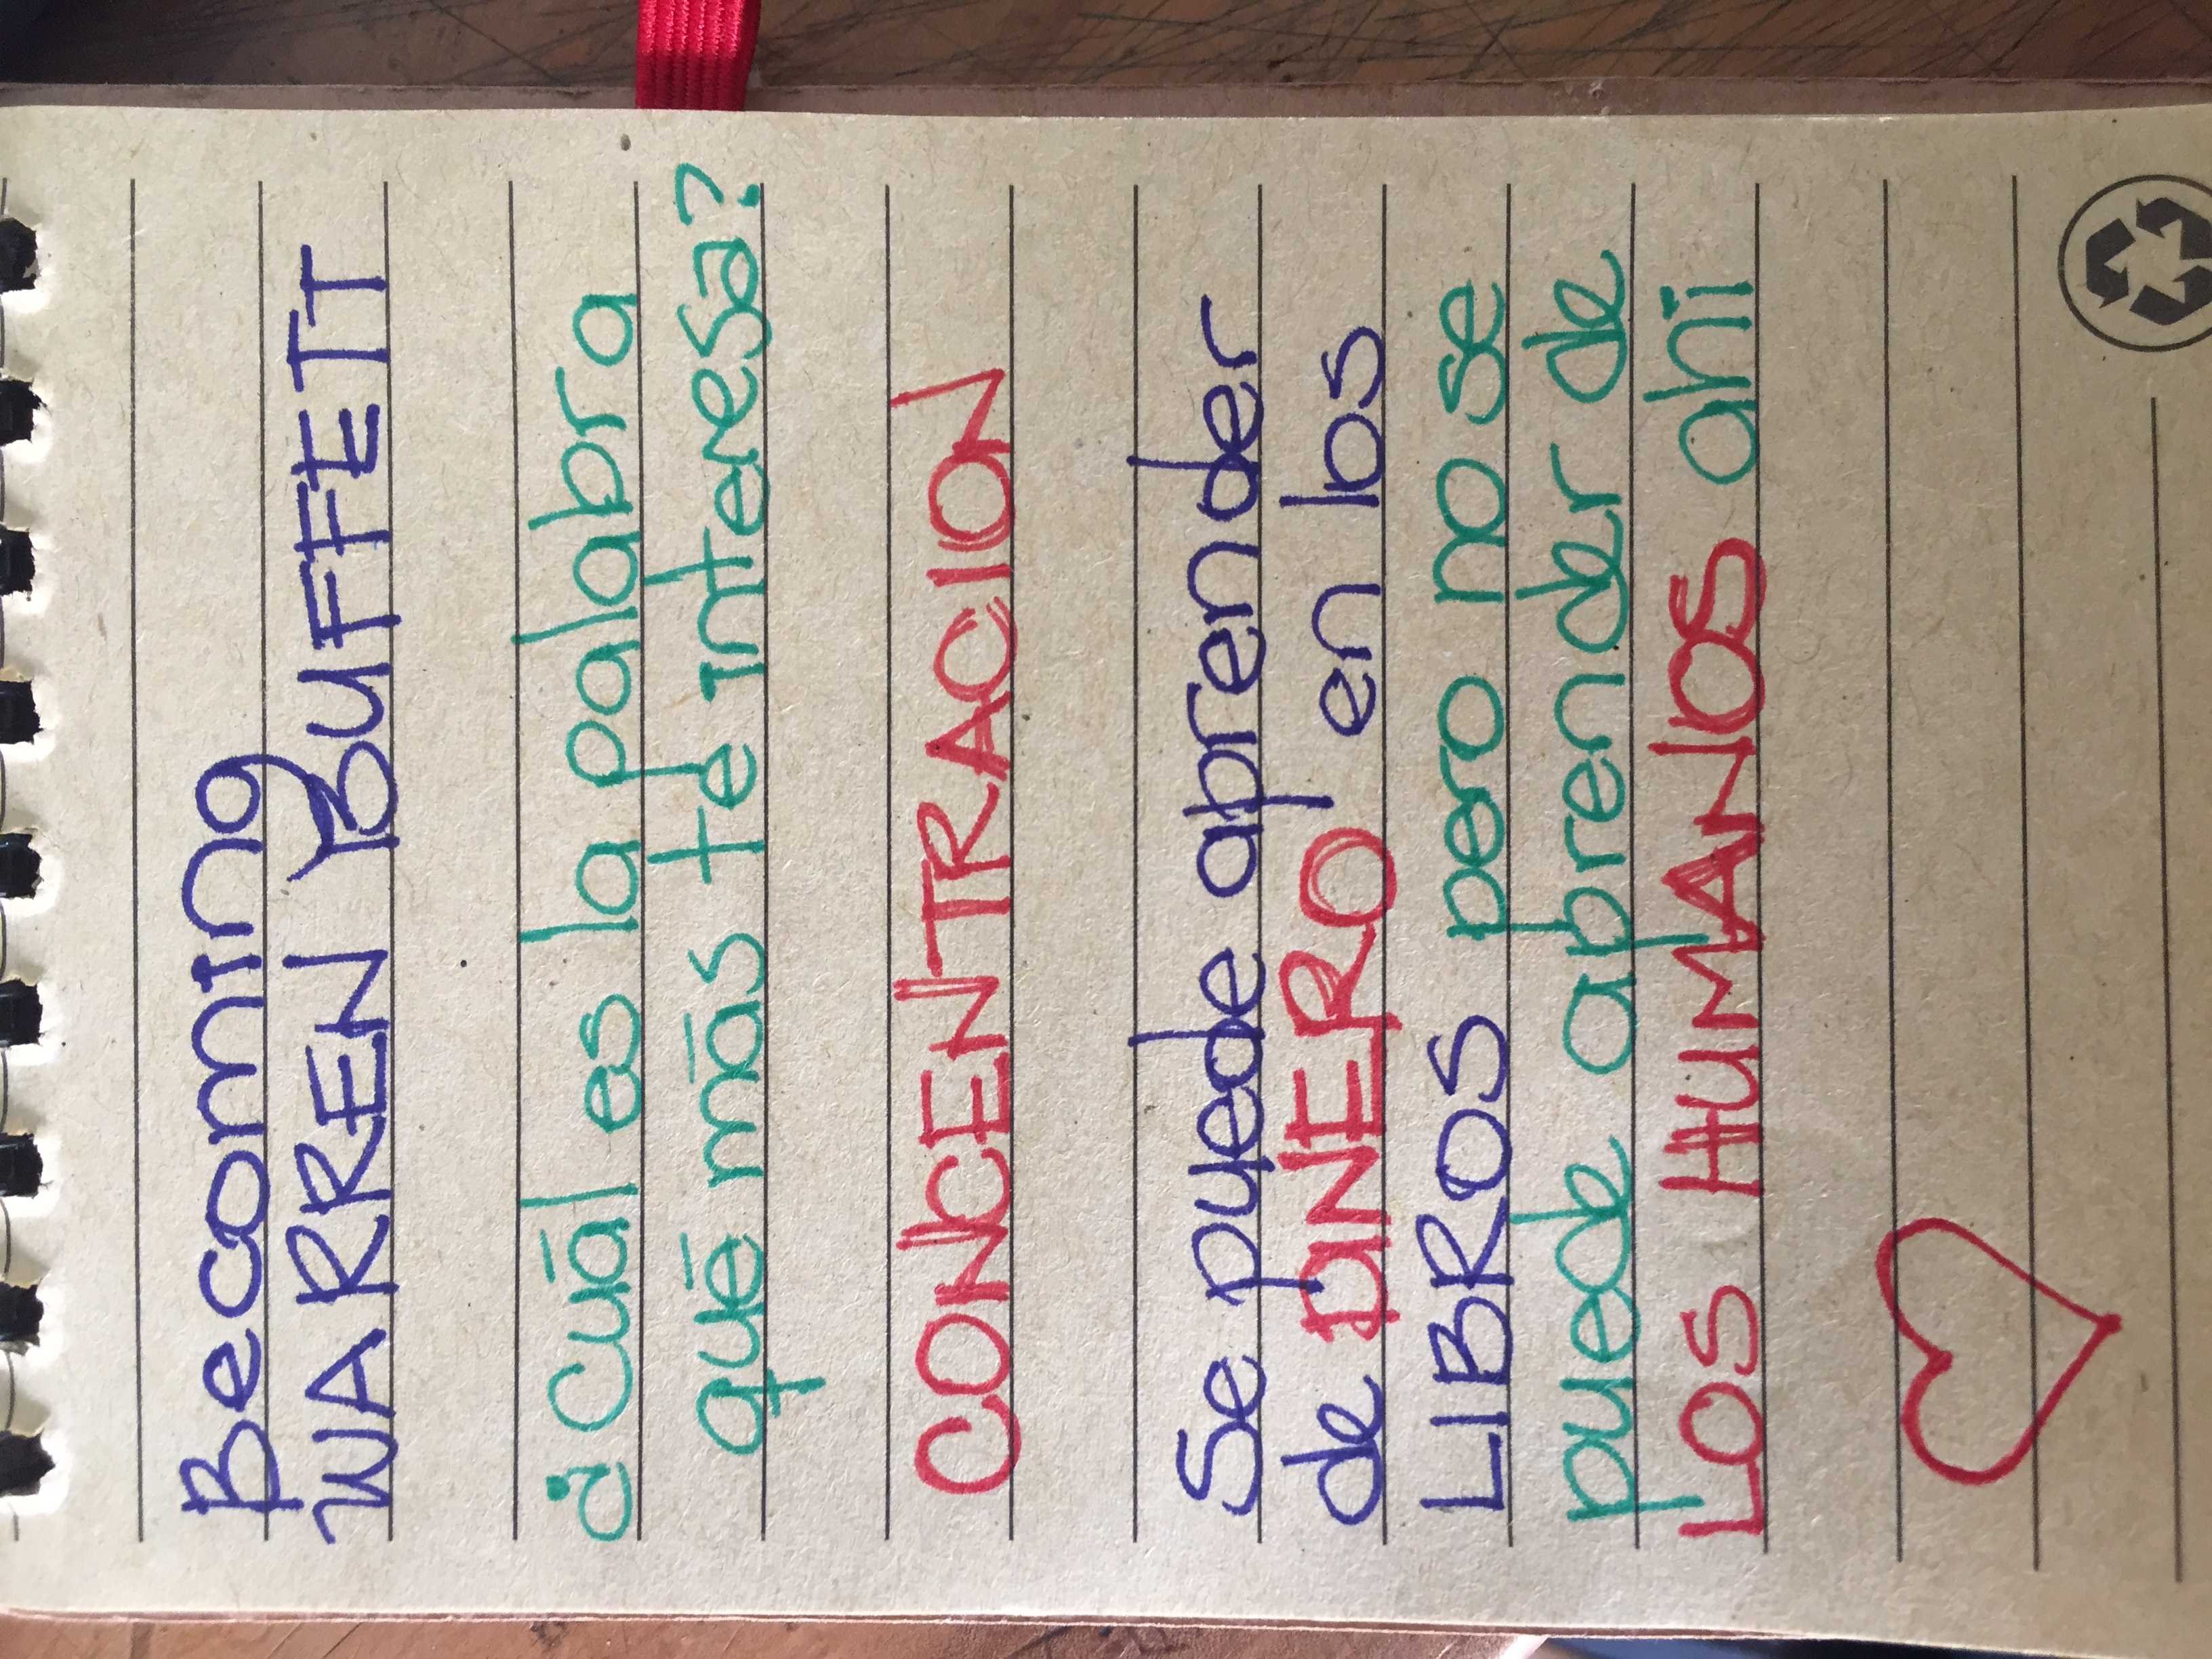 Becoming
WARREN BUFFETT
¿Cuāl es la palabra
quē mās te interesa?
CONCENTRACION
Se puede aprender
de DINERO en los
LIBROS pero no se
puede aprender de
LOS HUMANOS ahī